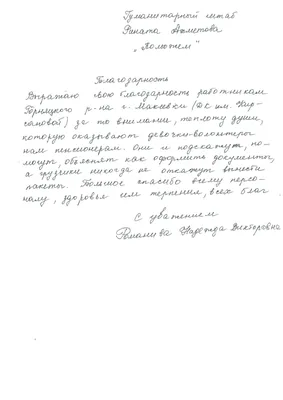 Гуманитарный штаб
Рината Ахметова
„Поможем"
Благодарность
Выражаю свою благодарность работникам
Горняцкого р-на г. Макеевки (ДК им. Кир-
сановой) за то внимание, теплоту души,
которую оказывают девочки-волонтеры
нам пенсионерам. Они и подскажут, по-
могут, объяснят как оформить документы,
а грузчики никогда не откажут вынести
пакеты. Большое спасибо всему персо-
налу, здоровья им терпения, всех благ.
С уважением
Надежда Викторовна